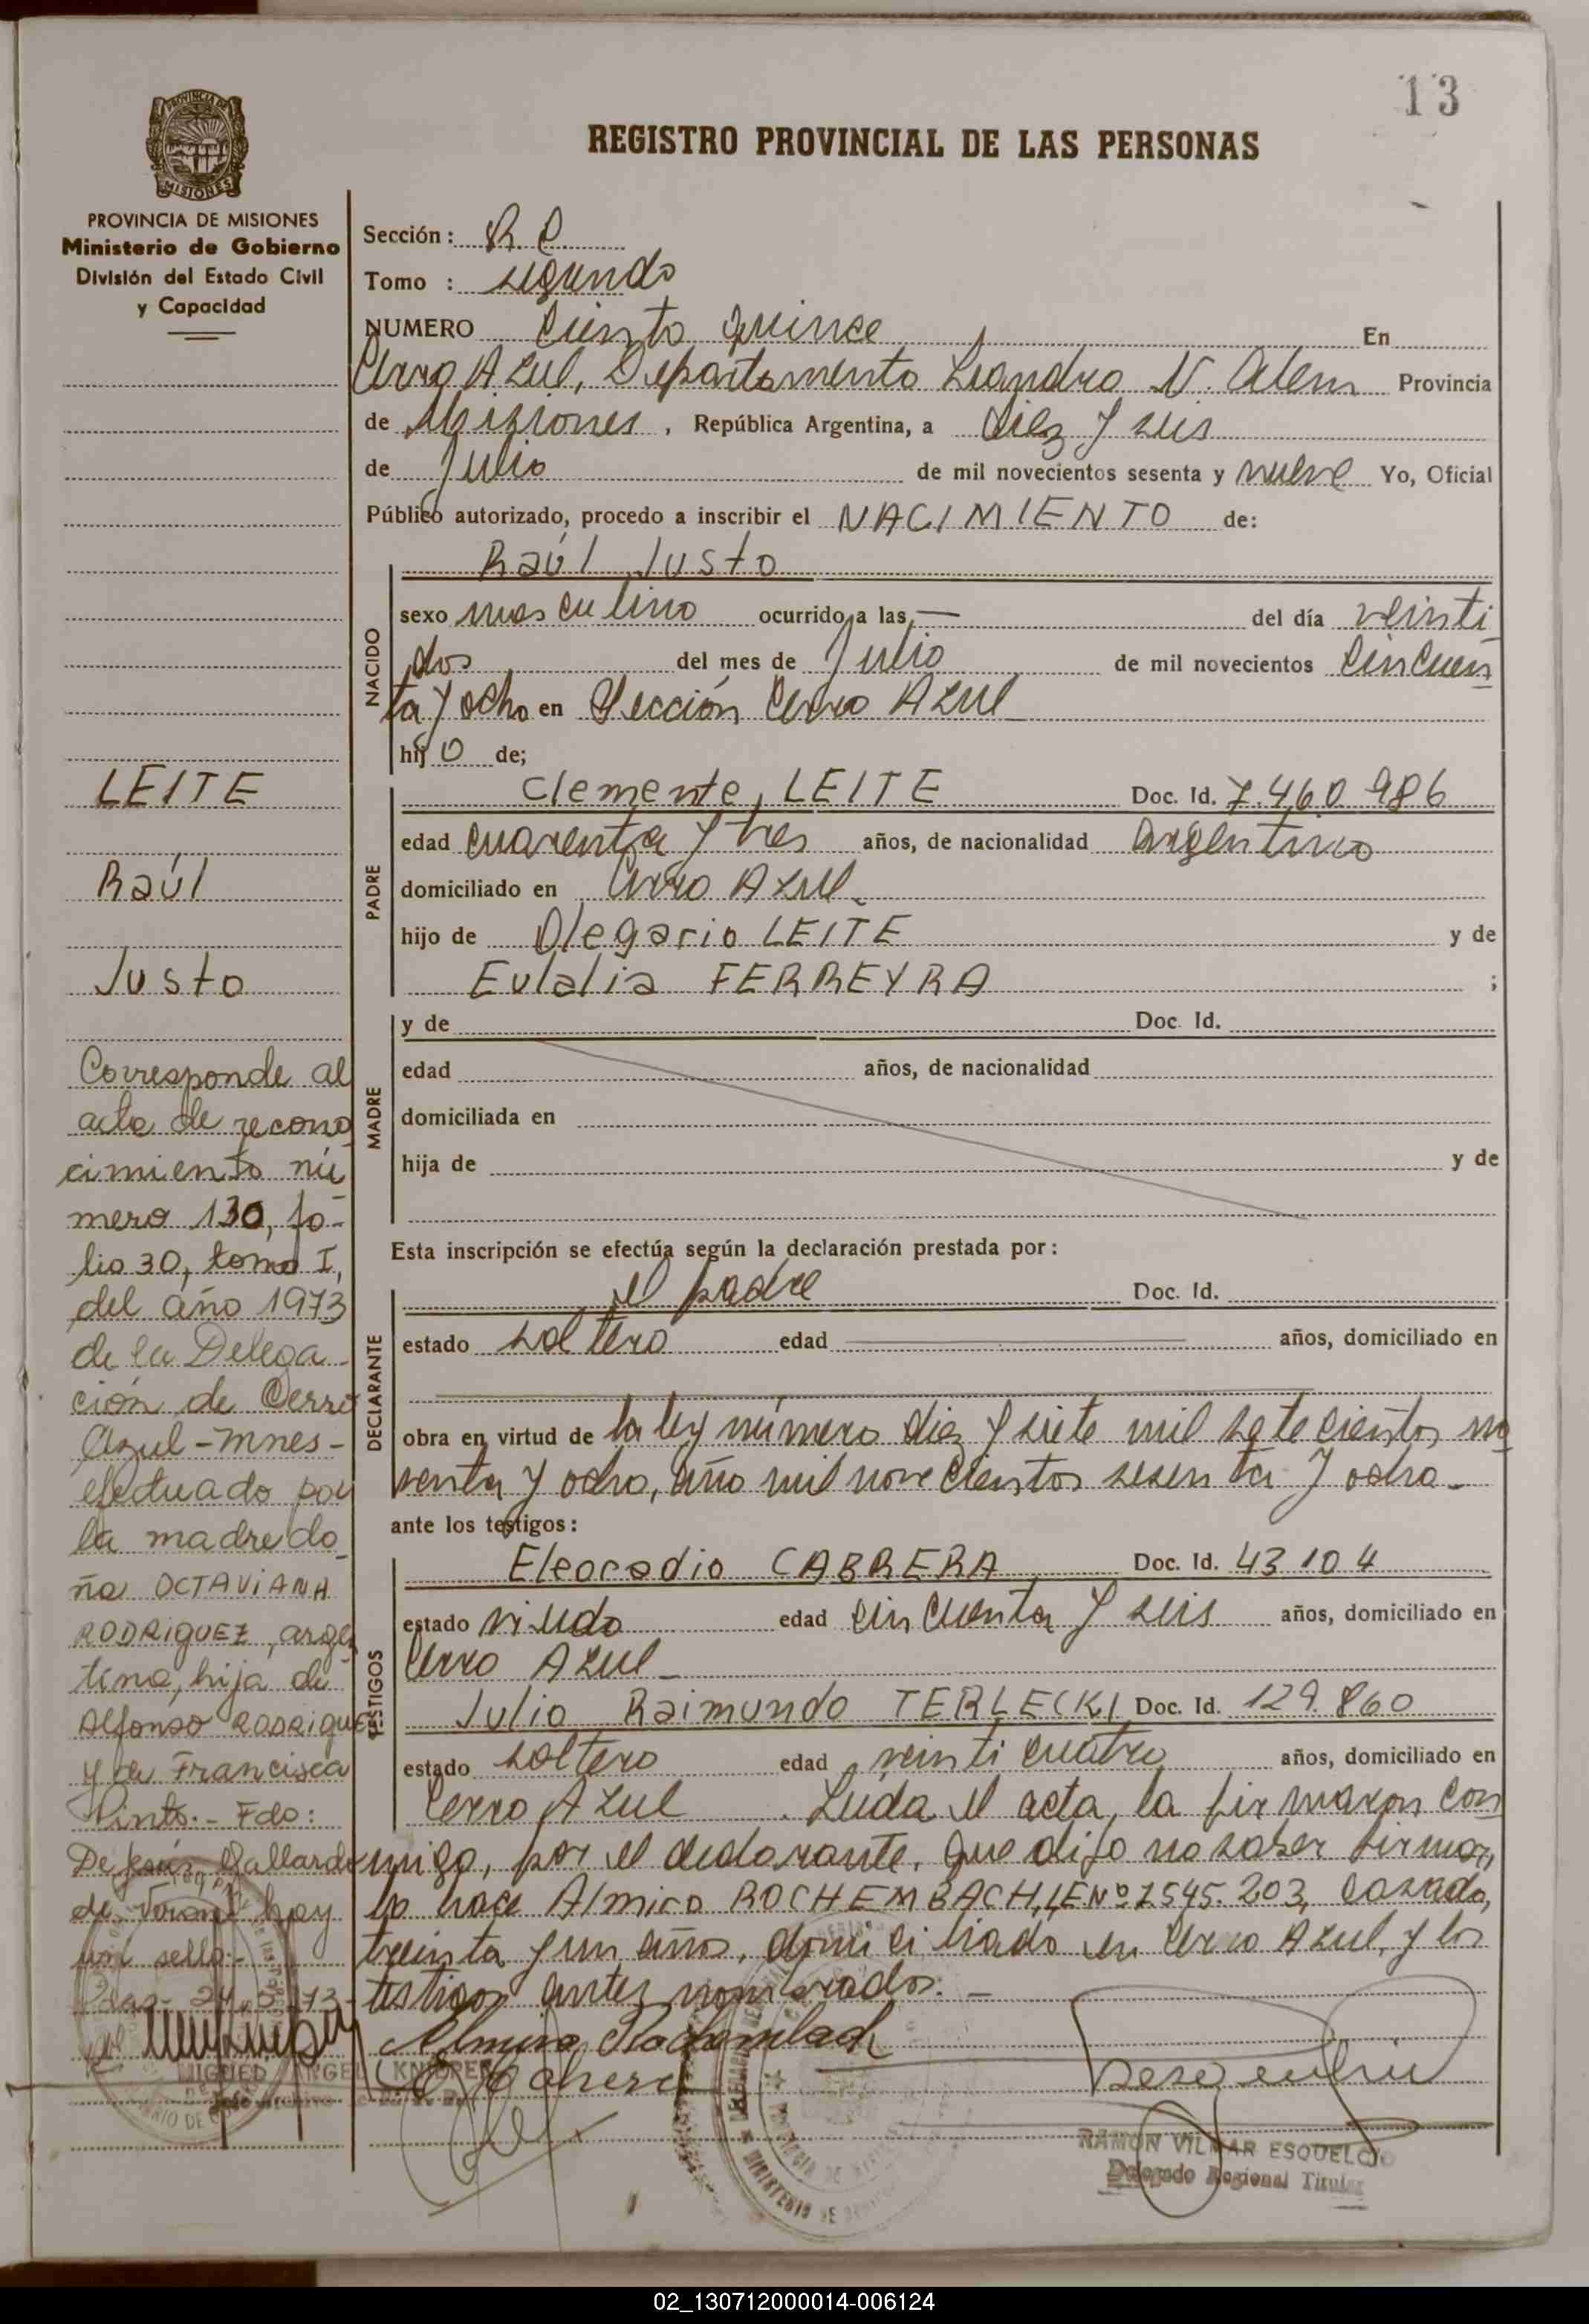 13
REGISTRO PROVINCIAL DE LAS PERSONAS
PROVINCIA DE MISIONES
Ministerio de Gobierno
División del Estado Civil
y Capacidad
LEITE
Raúl
Justo
Corresponde al
acta de recono
cimiento nú
mero 130, fo-
lio 30, tomo I,
del año 1973
de la Delega
ción de Cerro
Azul-Mnes-
efectuado por
la madre do
ña OCTAVIANA
RODRIGUEZ, argen
tina, hija de
Alfonso RODRIGUEZ
y de Francisca
Pinto.- Fdo:
De Jesús Gallardo
de hay
un sello.-
MIGUEL ANGEL KNOPPER
Sección: R. P.
Tomo : segundo
NUMERO Ciento quince En
Cerro Azul, Departamento Leandro N. Alem Provincia
de Misiones, República Argentina, a diez y seis
de Julio de mil novecientos sesenta y nueve Yo, Oficial
Público autorizado, procedo a inscribir el NACIMIENTO de:
Raúl Justo
NACIDO
sexo masculino ocurrido a las — del día veinti
dos del mes de Julio de mil novecientos cincuen
ta y ocho en Sección Cerro Azul
hijo de;
PADRE
Clemente LEITE Doc. Id. 7.460.986
edad cuarenta y tres años, de nacionalidad argentino
domiciliado en Cerro Azul
hijo de Olegario LEITE y de
Eulalia FERREYRA ;
MADRE
y de Doc. Id.
edad años, de nacionalidad
domiciliada en
hija de y de
Esta inscripción se efectúa según la declaración prestada por:
DECLARANTE
el padre Doc. Id.
estado soltero edad años, domiciliado en
obra en virtud de la ley número diez y siete mil setecientos no
venta y ocho, año mil novecientos sesenta y ocho-
ante los testigos:
TESTIGOS
Eleocadio CABRERA Doc. Id. 43104
estado viudo edad cincuenta y seis años, domiciliado en
Cerro Azul-
Julio Raimundo TERLECKI Doc. Id. 129.860
estado soltero edad veinticuatro años, domiciliado en
Cerro Azul . Leída el acta, la firmaron con
migo, por el declarante, que dijo no saber firmar,
lo hace Almiro ROCHEMBACH, LE Nº 7545.203, casado,
treinta y un años, domiciliado en Cerro Azul, y los
testigos antes nombrados.-
Almiro Rochembach
RAMON VILMAR ESQUELCIO
Delegado Regional Titular
02_130712000014-006124